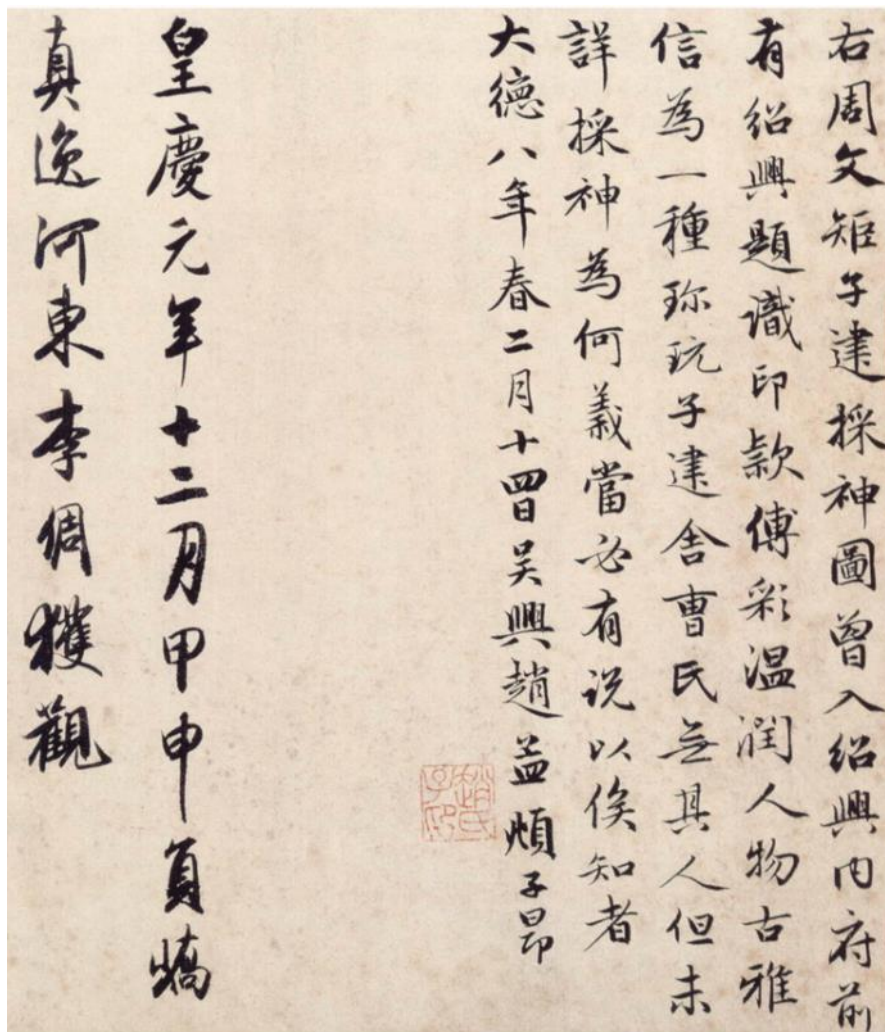 右周文矩子建採神圖曾入紹興内府前
有紹興題識印款傅彩温潤人物古雅
信為一種珎玩子建舎曹氏無其人但未
詳採神為何義當必有説以俟知者
大德八年春二月十四日吴興趙孟頫子昂
趙氏子昂
皇慶元年十二月甲申員嶠
真逸河東李倜獲觀